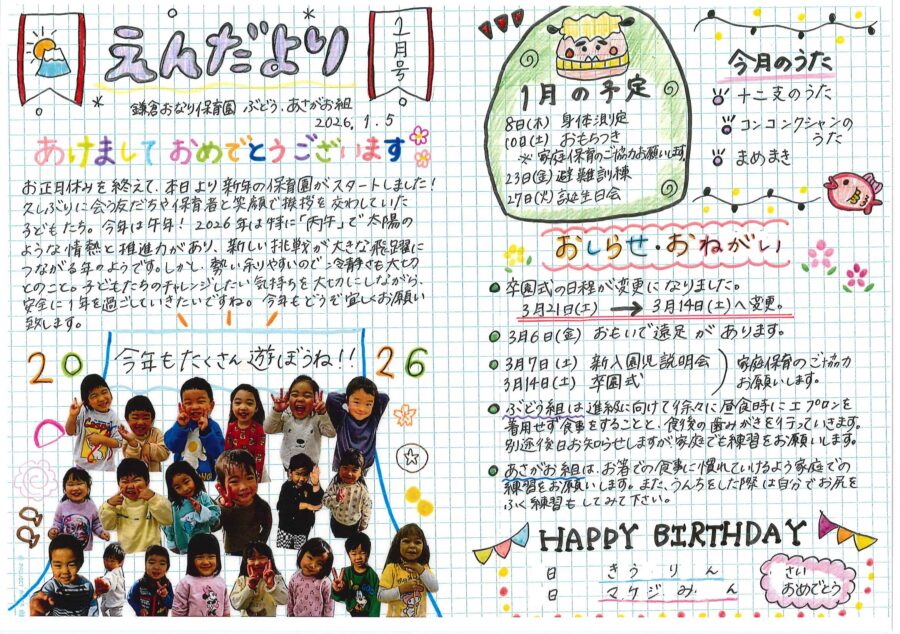 えんだより
1月号
鎌倉おなり保育園 ぶどう・あさがお組
2026.1.5
あけまして おめでとうございます
お正月休みを終えて、本日より新年の保育園がスタートしました!
久しぶりに会う友だちや保育者と笑顔で挨拶を交わしていた
子どもたち。今年は午年!2026年は特に「丙午」で太陽の
ような情熱と推進力があり、新しい挑戦が大きな飛躍に
つながる年のようです。しかし、勢い余りやすいので冷静さも大切
とのこと。子どもたちのチャレンジしたい気持ちを大切にしながら、
安全に1年を過ごしていきたいですね。今年もどうぞ宜しくお願い
致します。
2026
今年もたくさん遊ぼうね!!
1月の予定
8日(木) 身体測定
10日(土) おもちつき
※家庭保育のご協力お願いします。
23日(金) 避難訓練
27日(火) 誕生日会
今月のうた
十二支のうた
コンコンクシャンの
うた
まめまき
おしらせ・おねがい
卒園式の日程が変更になりました。
3月21日(土) → 3月14日(土)へ変更。
3月6日(金) おもいで遠足があります。
3月7日(土) 新入園児説明会
3月14日(土) 卒園式
家庭保育のご協力
お願いします。
ぶどう組は進級に向けて徐々に昼食時にエプロンを
着用せず食事をすることと、食後の歯みがきを行っていきます。
別途後日お知らせしますが家庭でも練習をお願いします。
あさがお組は、お箸での食事に慣れていけるよう家庭での
練習をお願いします。また、うんちをした際は自分でお尻を
ふく練習もしてみて下さい。
HAPPY BIRTHDAY
日 きうりん
日 マケジみん
さい
おめでとう